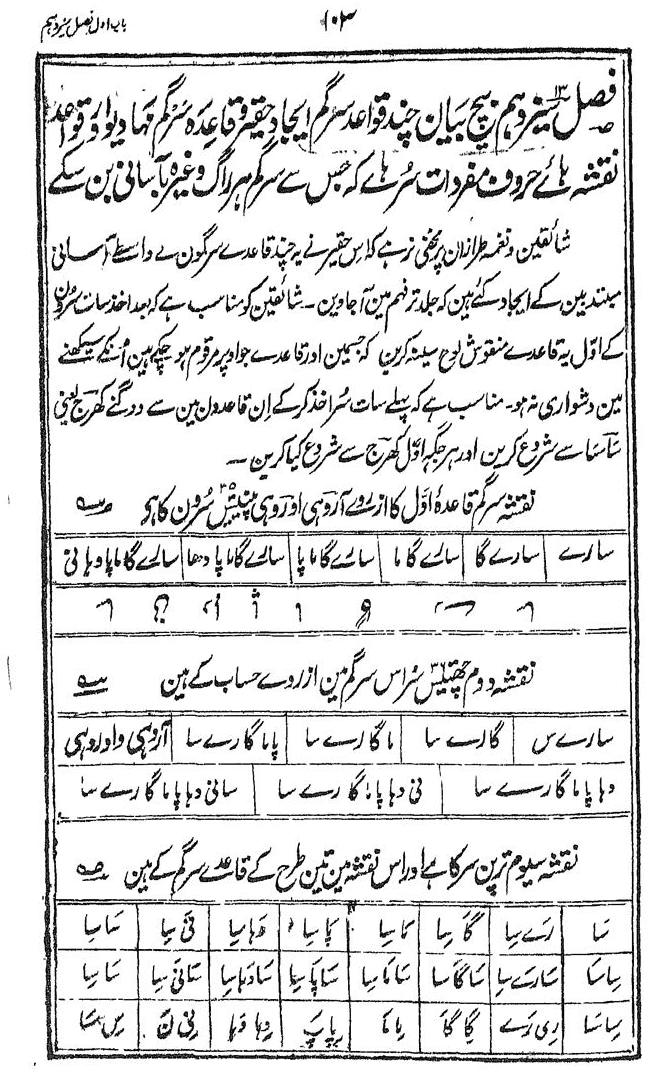 باب اول فصل سیزدہم
۱۰۳
فصل سیزدہم بیچ بیان چند قواعد سرگم ایجاد حقیر و قاعدہ سرگم مہادیو اور قواعد
نقشہ ہائے حروف مفردات سُر ہائے کہ جس سے سرگم ہر راگ وغیرہ بآسانی بن سکے
شائقین و نغمہ طرازان پر مخفی نرہے کہ اس حقیر نے یہ چند قاعدے سرگمون کے واسطے آسانی
مبتدیین کے ایجاد کئے ہین کہ جلد تر فہم مین آجاوین ۔ شائقین کو مناسب ہے کہ بعد اخذ سات سُرون
کے اوّل یہ قاعدے منقوش لوح سینہ کرین کہ جسمین اور قاعدے جو اوپر مرقوم ہو چکے ہین اُنکے سیکھنے
مین دشواری نہ ہو ۔ مناسب ہے کہ پہلے سات سُر اخذ کر کے اِن قاعدون مین سے دوگنے کھرج یعنی
سَاسَا سے شروع کرین اور ہر جگہ اوّل کھرج سے شروع کیا کرین ۔۔
نقشہ سرگم قاعدۂ اوّل کا از روے آروہی اوروہی پینتیس سُرون کا ہے
سارے سارے گا سارے گا ما سارے گا ما پا سارے گا ما پا دھا سارے گا ما پا دہا نی
نقشہ دوم چھتیس سُر اس سرگم مین از روے حساب کے ہین
سارے س گارے سا ما گارے سا پا ما گارے سا آروہی و اوروہی
دہا پا ما گارے سا نی دہا پا ما گارے سا سا نی دہا پا ما گارے سا
نقشہ سیوم ترپن سر کا ہے اور اس نقشہ مین تین طرح کے قاعدے سرگم کے ہین
سَا رَے سِا گَا سِا مَا سِا پَا سِا دَہا سِا نَی سِا سَا سِا
سِا سَا سَارَے سِا سَا گَا سِا سَا مَا سِا سَا پَا سِا سَا دَہا سِا سَا نَی سِا سَا سِا
سِا سَا رِی رَے گِا گَا مِا مَا پِا پَ دِہا دَہا نِی نَ سِ سَا